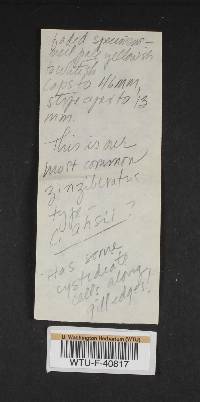 faded specimen —
very pale yellowish
caps to 46mm,
stipe apex to 13
mm.
This is our
most common
zinziberatus
type —
C. ?
Has some
cystidioid
cells along
gill edges!
U. Washington Herbarium (WTU)
WTU-F-40817